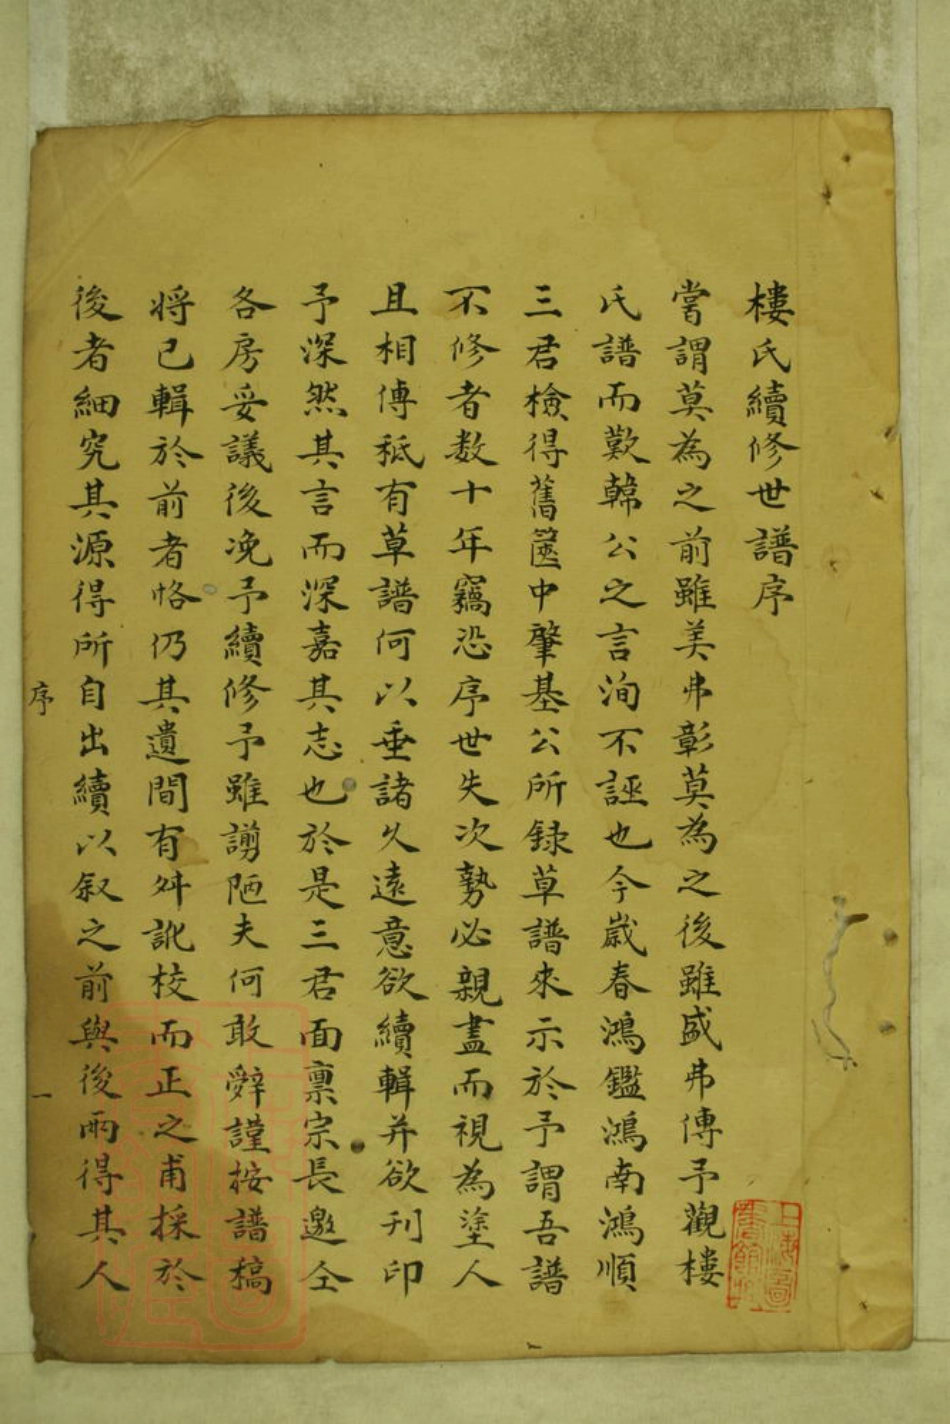 樓氏續修世譜序
嘗謂莫為之前雖美弗彰莫為之後雖盛弗傳予觀樓
氏譜而歎韓公之言洵不誣也今歲春鴻鑑鴻南鴻順
三君檢得舊篋中肇基公所録草譜來示於予謂吾譜
不修者数十年竊恐序世失次勢必親盡而視為塗人
且相傳秪有草譜何以垂諸久遠意欲續輯并欲刊印
予深然其言而深嘉其志也於是三君面禀宗長邀仝
各房妥議後凂予續修予雖謭陋夫何敢辤謹按譜稿
將已輯於前者恪仍其遺間有舛訛校而正之甫採於
後者細究其源得所自出續以叙之前與後兩得其人
序
一